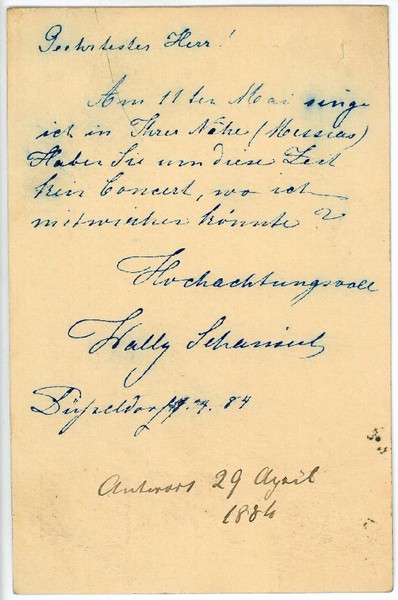 Geehrtester Herr!
Am 11ten Mai singe
ich in Ihrer Nähe (Messias)
Haben Sie um diese Zeit
kein Concert, wo ich
mitwirken könnte?
Hochachtungsvoll
Wally
Düsseldorf .4. 84
Antwort 29 April
1884